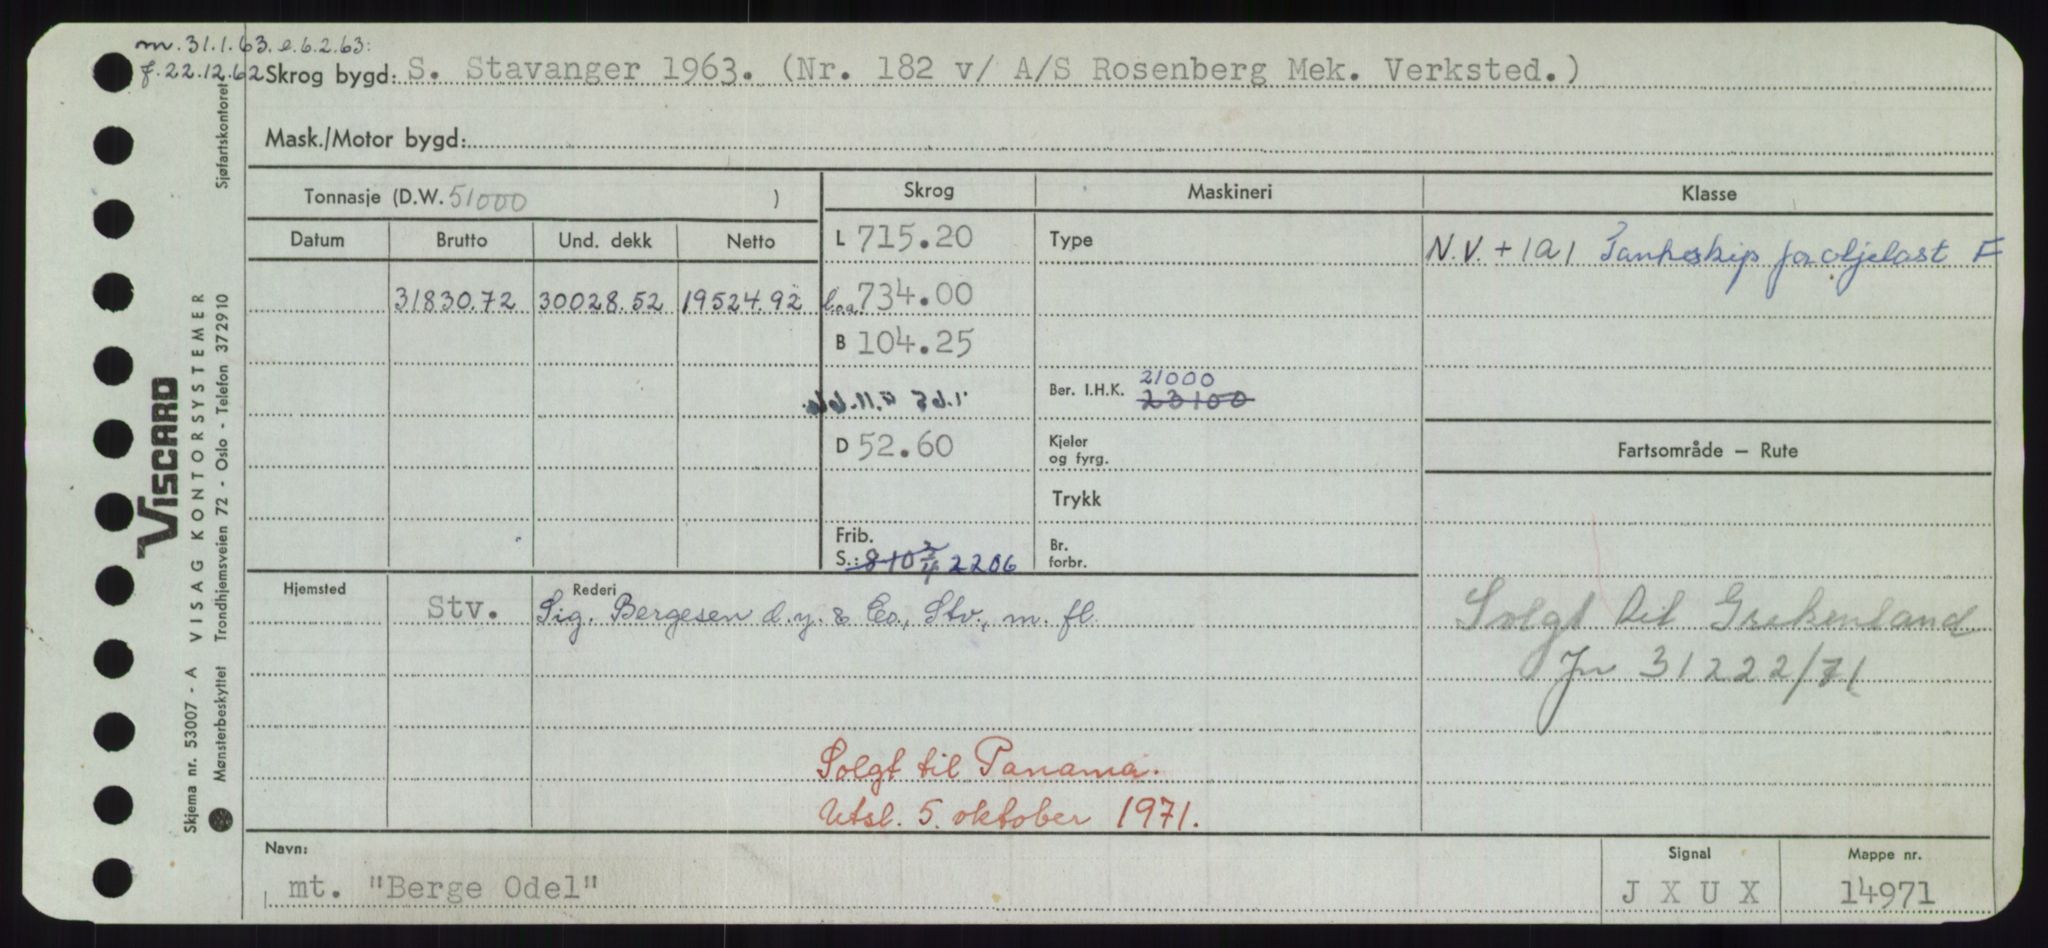 m. 31.1.63. e. 6.2.63:
f. 22.12.62 Skrog bygd: S. Stavanger 1963. (Nr. 182 v/ A/S Rosenberg Mek. Verksted.)
Mask./Motor bygd:
Tonnasje (D.W. 51000 ) Skrog Maskineri Klasse
Datum Brutto Und. dekk Netto L 715.20 Type N.V. + 1A1 Tankskip for oljelast F
31830.72 30028.52 19524.92 l.o.a. 734.00
B 104.25
Ber. I.H.K. 21000
23100
D 52.60 Kjeler og fyrg. Fartsområde — Rute
Trykk
Frib.
S.: 8-10 3/4 2206 Br. forbr.
Hjemsted Rederi
Stv. Sig. Bergesen d.y. & Co., Stv., m. fl. Solgt til Grekenland
Jn 31222/71
Solgt til Panama.
Utsl. 5. oktober 1971.
Navn: Signal Mappe nr.
mt. "Berge Odel" J X U X 14971
Sjøfartskontoret
VISCARD
VISAG KONTORSYSTEMER
Skjema nr. 53007 - A
Mønsterbeskyttet Trondhjemsveien 72 - Oslo - Telefon 372910